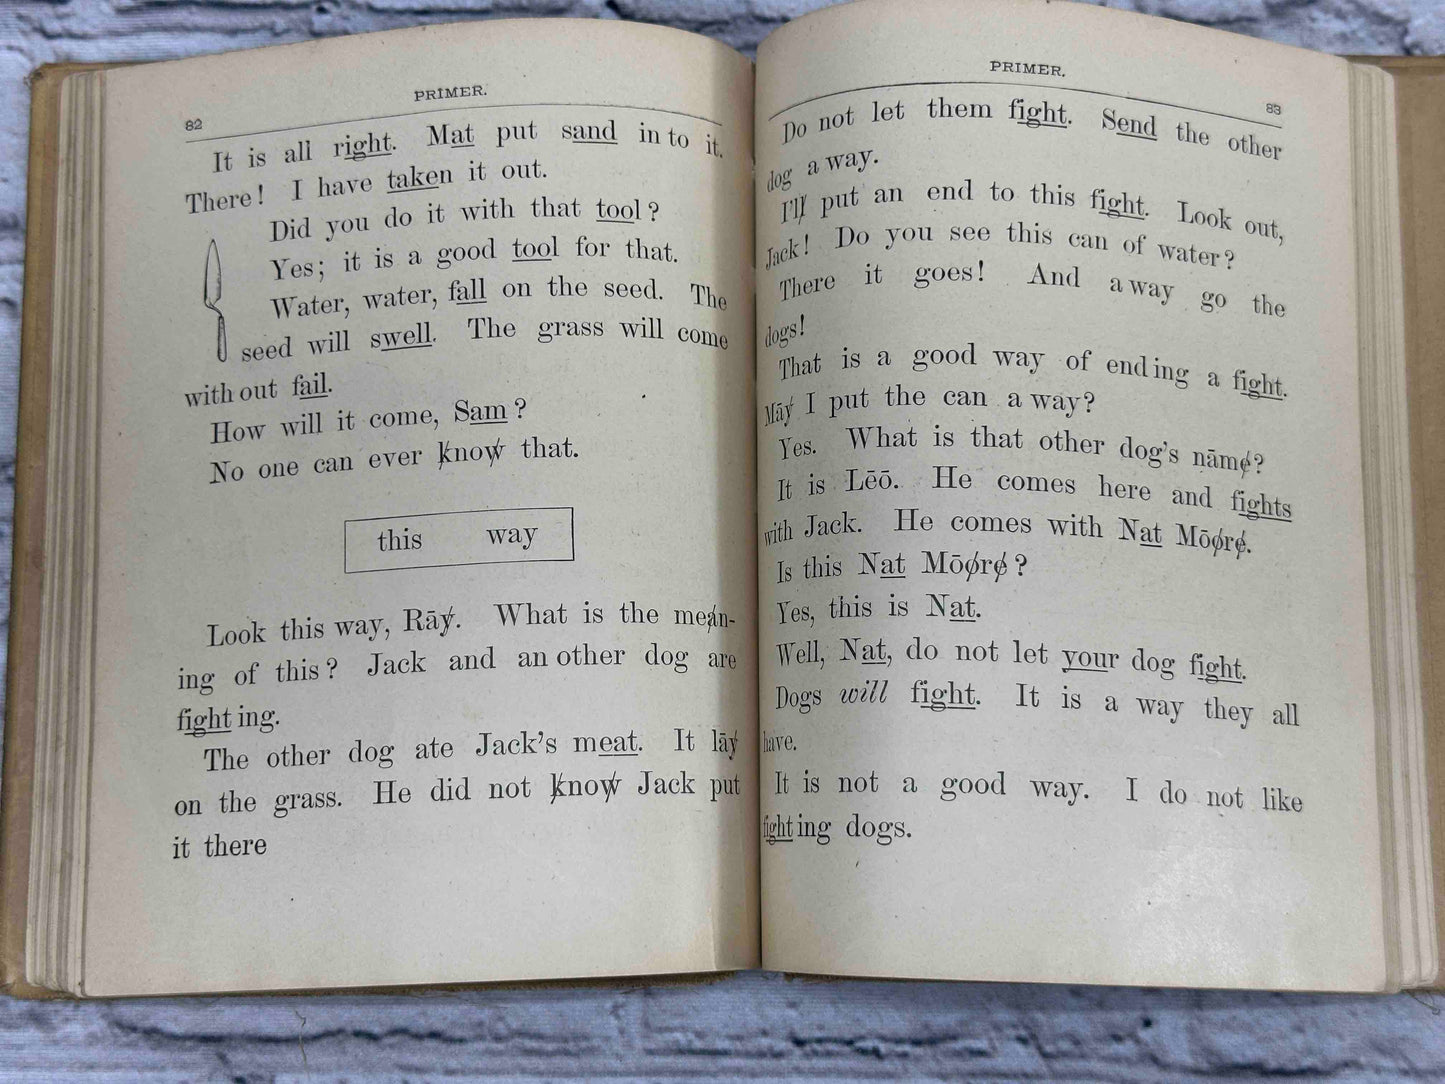 PRIMER.
82
It is all right. Mat put sand in to it.
There! I have taken it out.
Did you do it with that tool?
Yes; it is a good tool for that.
Water, water, fall on the seed. The
seed will swell. The grass will come
with out fail.
How will it come, Sam?
No one can ever know that.
this way
Look this way, Rāy. What is the mean-
ing of this? Jack and an other dog are
fight ing.
The other dog ate Jack's meat. It lāy
on the grass. He did not know Jack put
it there
PRIMER.
83
Do not let them fight. Send the other
dog a way.
I'll put an end to this fight. Look out,
Jack! Do you see this can of water?
There it goes! And a way go the
dogs!
That is a good way of end ing a fight.
Māy I put the can a way?
Yes. What is that other dog's nāme?
It is Lēō. He comes here and fights
with Jack. He comes with Nat Mōore.
Is this Nat Mōore?
Yes, this is Nat.
Well, Nat, do not let your dog fight.
Dogs will fight. It is a way they all
have.
It is not a good way. I do not like
fight ing dogs.